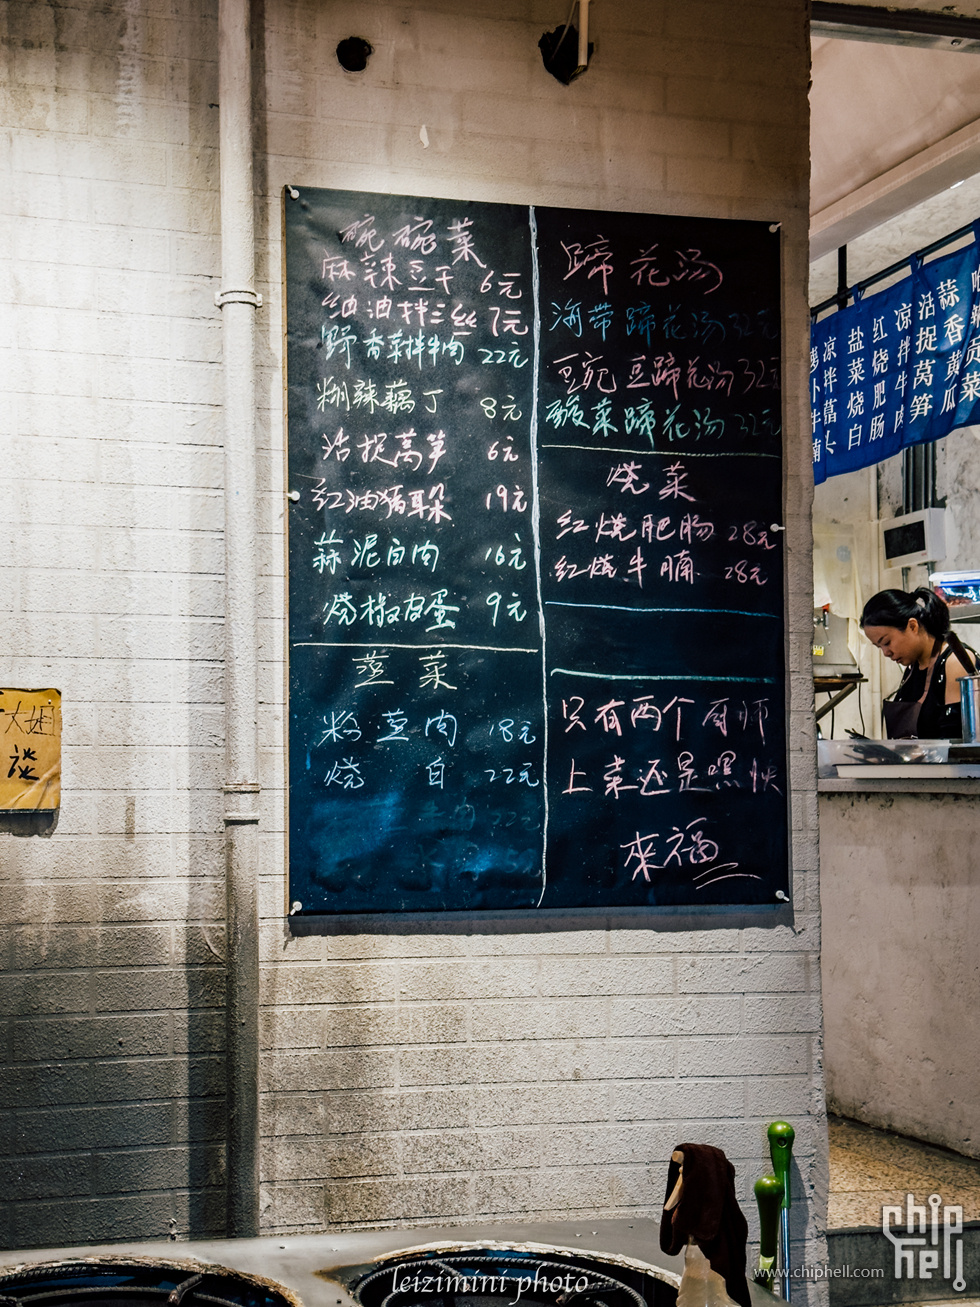 碗碗菜
麻辣豆干 6元
红油拌三丝 7元
野香菜拌牛肉 22元
糊辣藕丁 8元
沾捉莴笋 6元
红油猪耳朵 19元
蒜泥白肉 16元
烧椒皮蛋 9元
蒸菜
粉蒸肉 18元
烧白 22元
蹄花汤
海带蹄花汤 32元
豌豆蹄花汤 32元
酸菜蹄花汤 32元
烧菜
红烧肥肠 28元
红烧牛腩 28元
只有两个厨师
上菜还是嘿快
來福
蒜香黄瓜
沾捉莴笋
凉拌牛肉
红烧肥肠
盐菜烧白
凉拌
大姐
谈
leizimini photo
www.chiphell.com
chip
hell